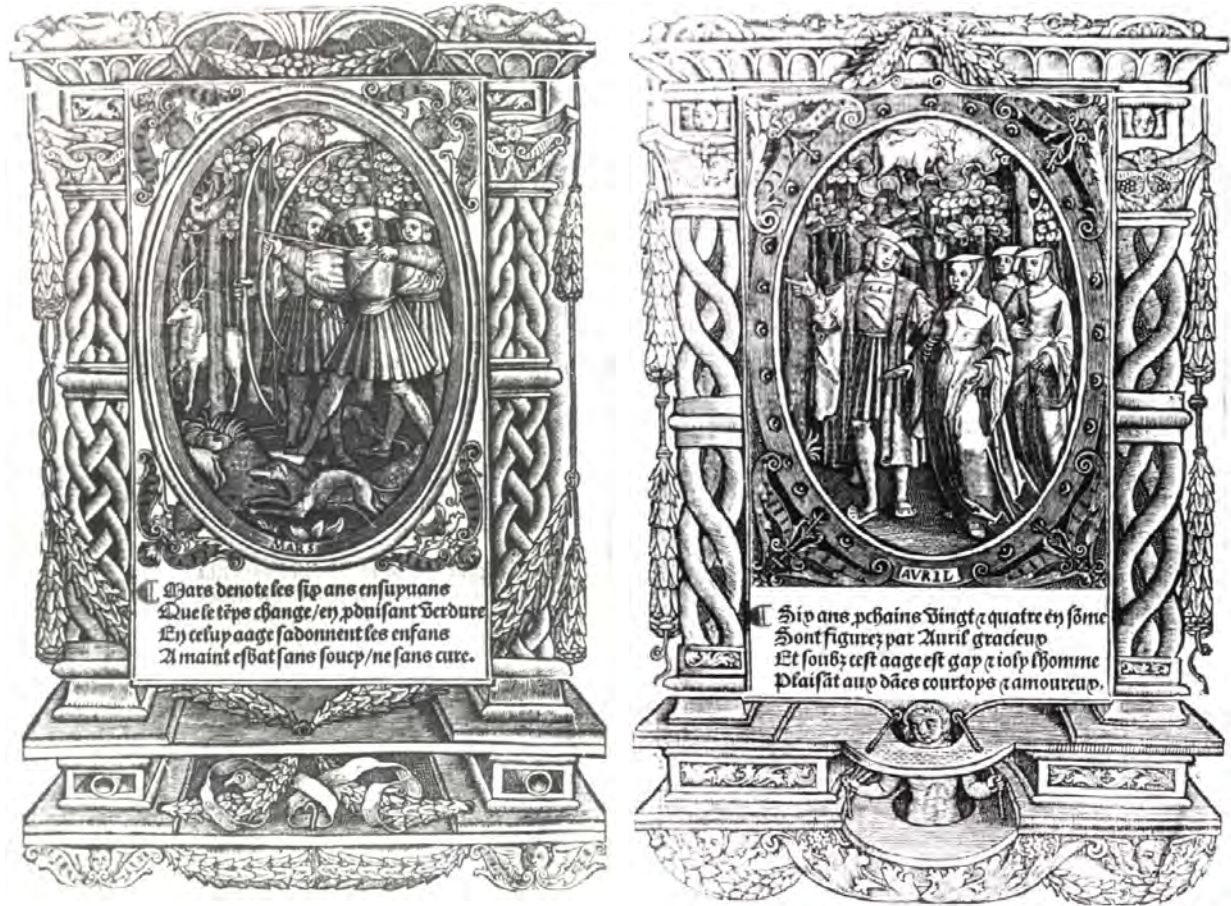 MARS
¶ Mars denote les six ans ensuyuans
Que le tẽps change/en ꝓduisant Verdure
En celuy aage sadonnent les enfans
A maint esbat sans soucy/ne sans cure.
AVRIL
¶ Six ans ꝓchains Vingt ⁊ quatre en sõme
Sont figurez par Auril gracieux
Et soubz cest aage est gay ⁊ ioly lhomme
Plaisãt aux dães courtoys ⁊ amoureux.